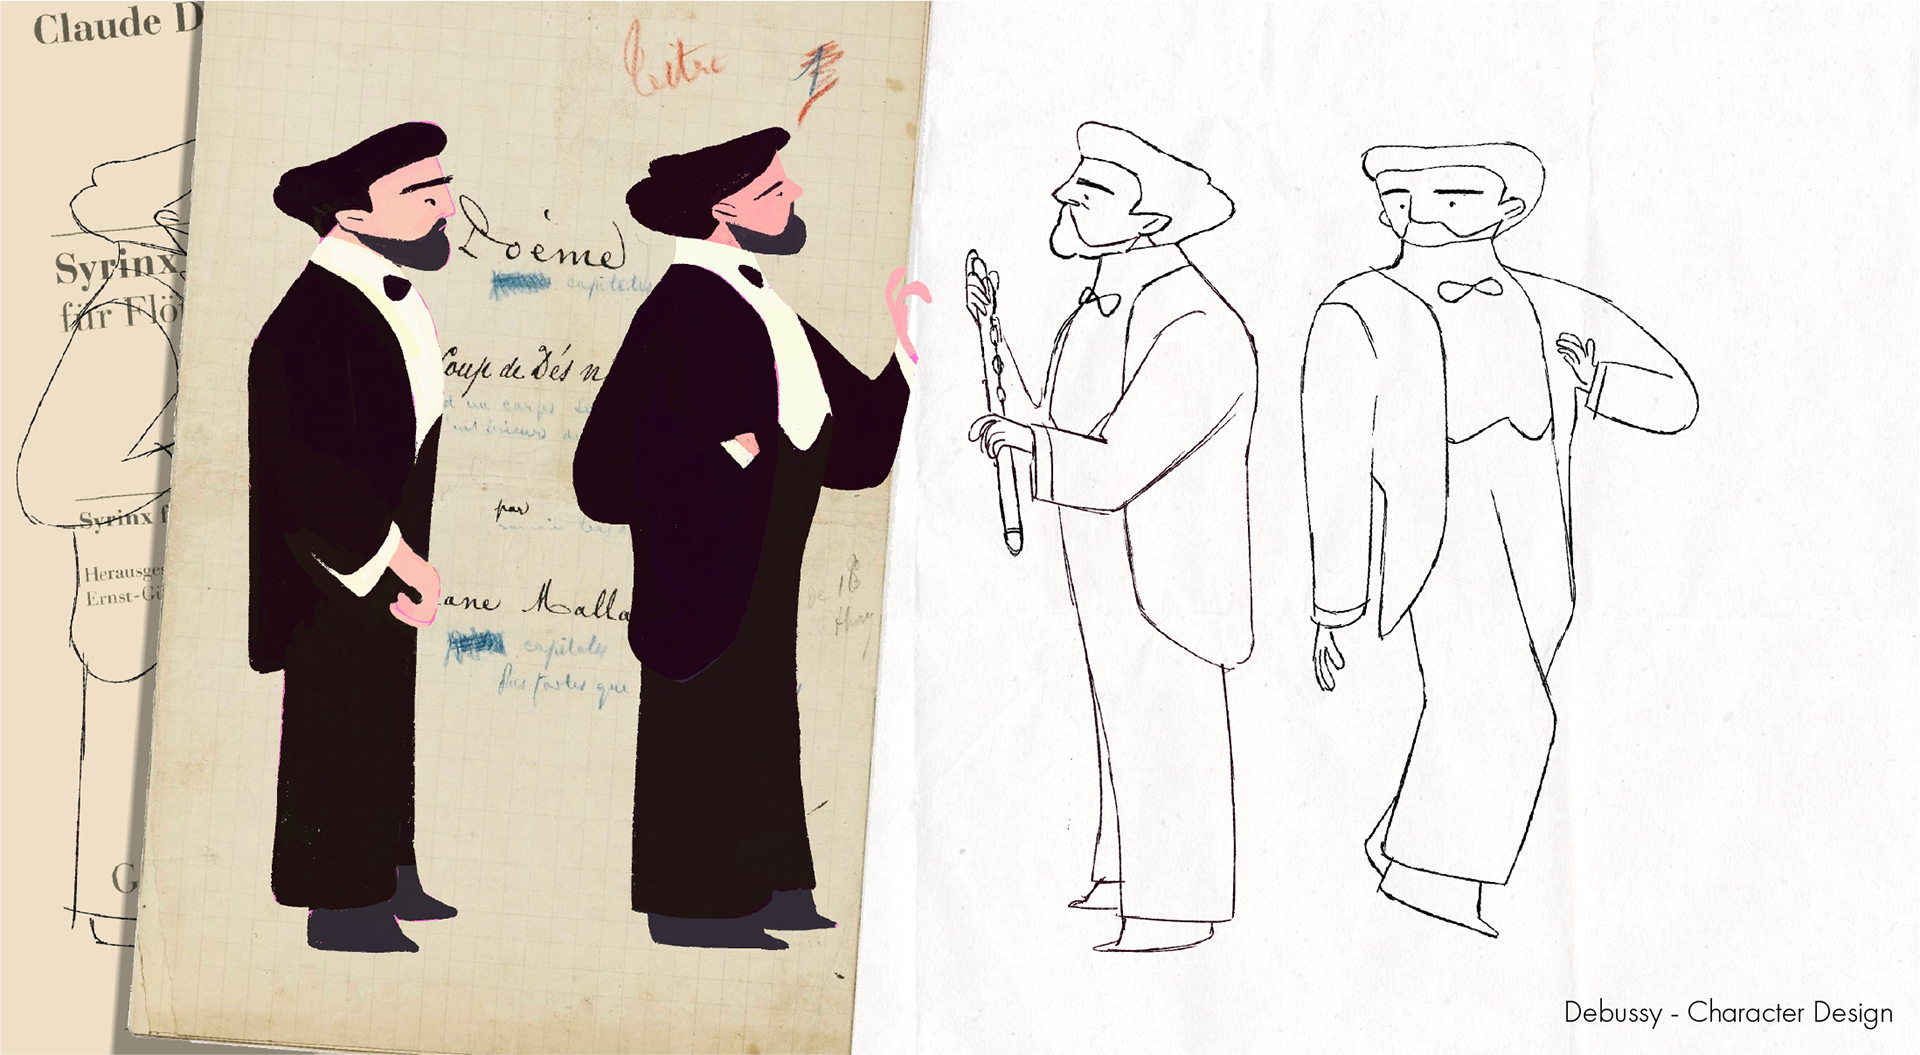 Claude D
Syrinx
für Flö
Syrinx f
Herausge
Ernst-Gü
G
titre
Poème
capitales
Coup de Dés n
par
ane Malla
capitales
plus fortes que
Debussy - Character Design